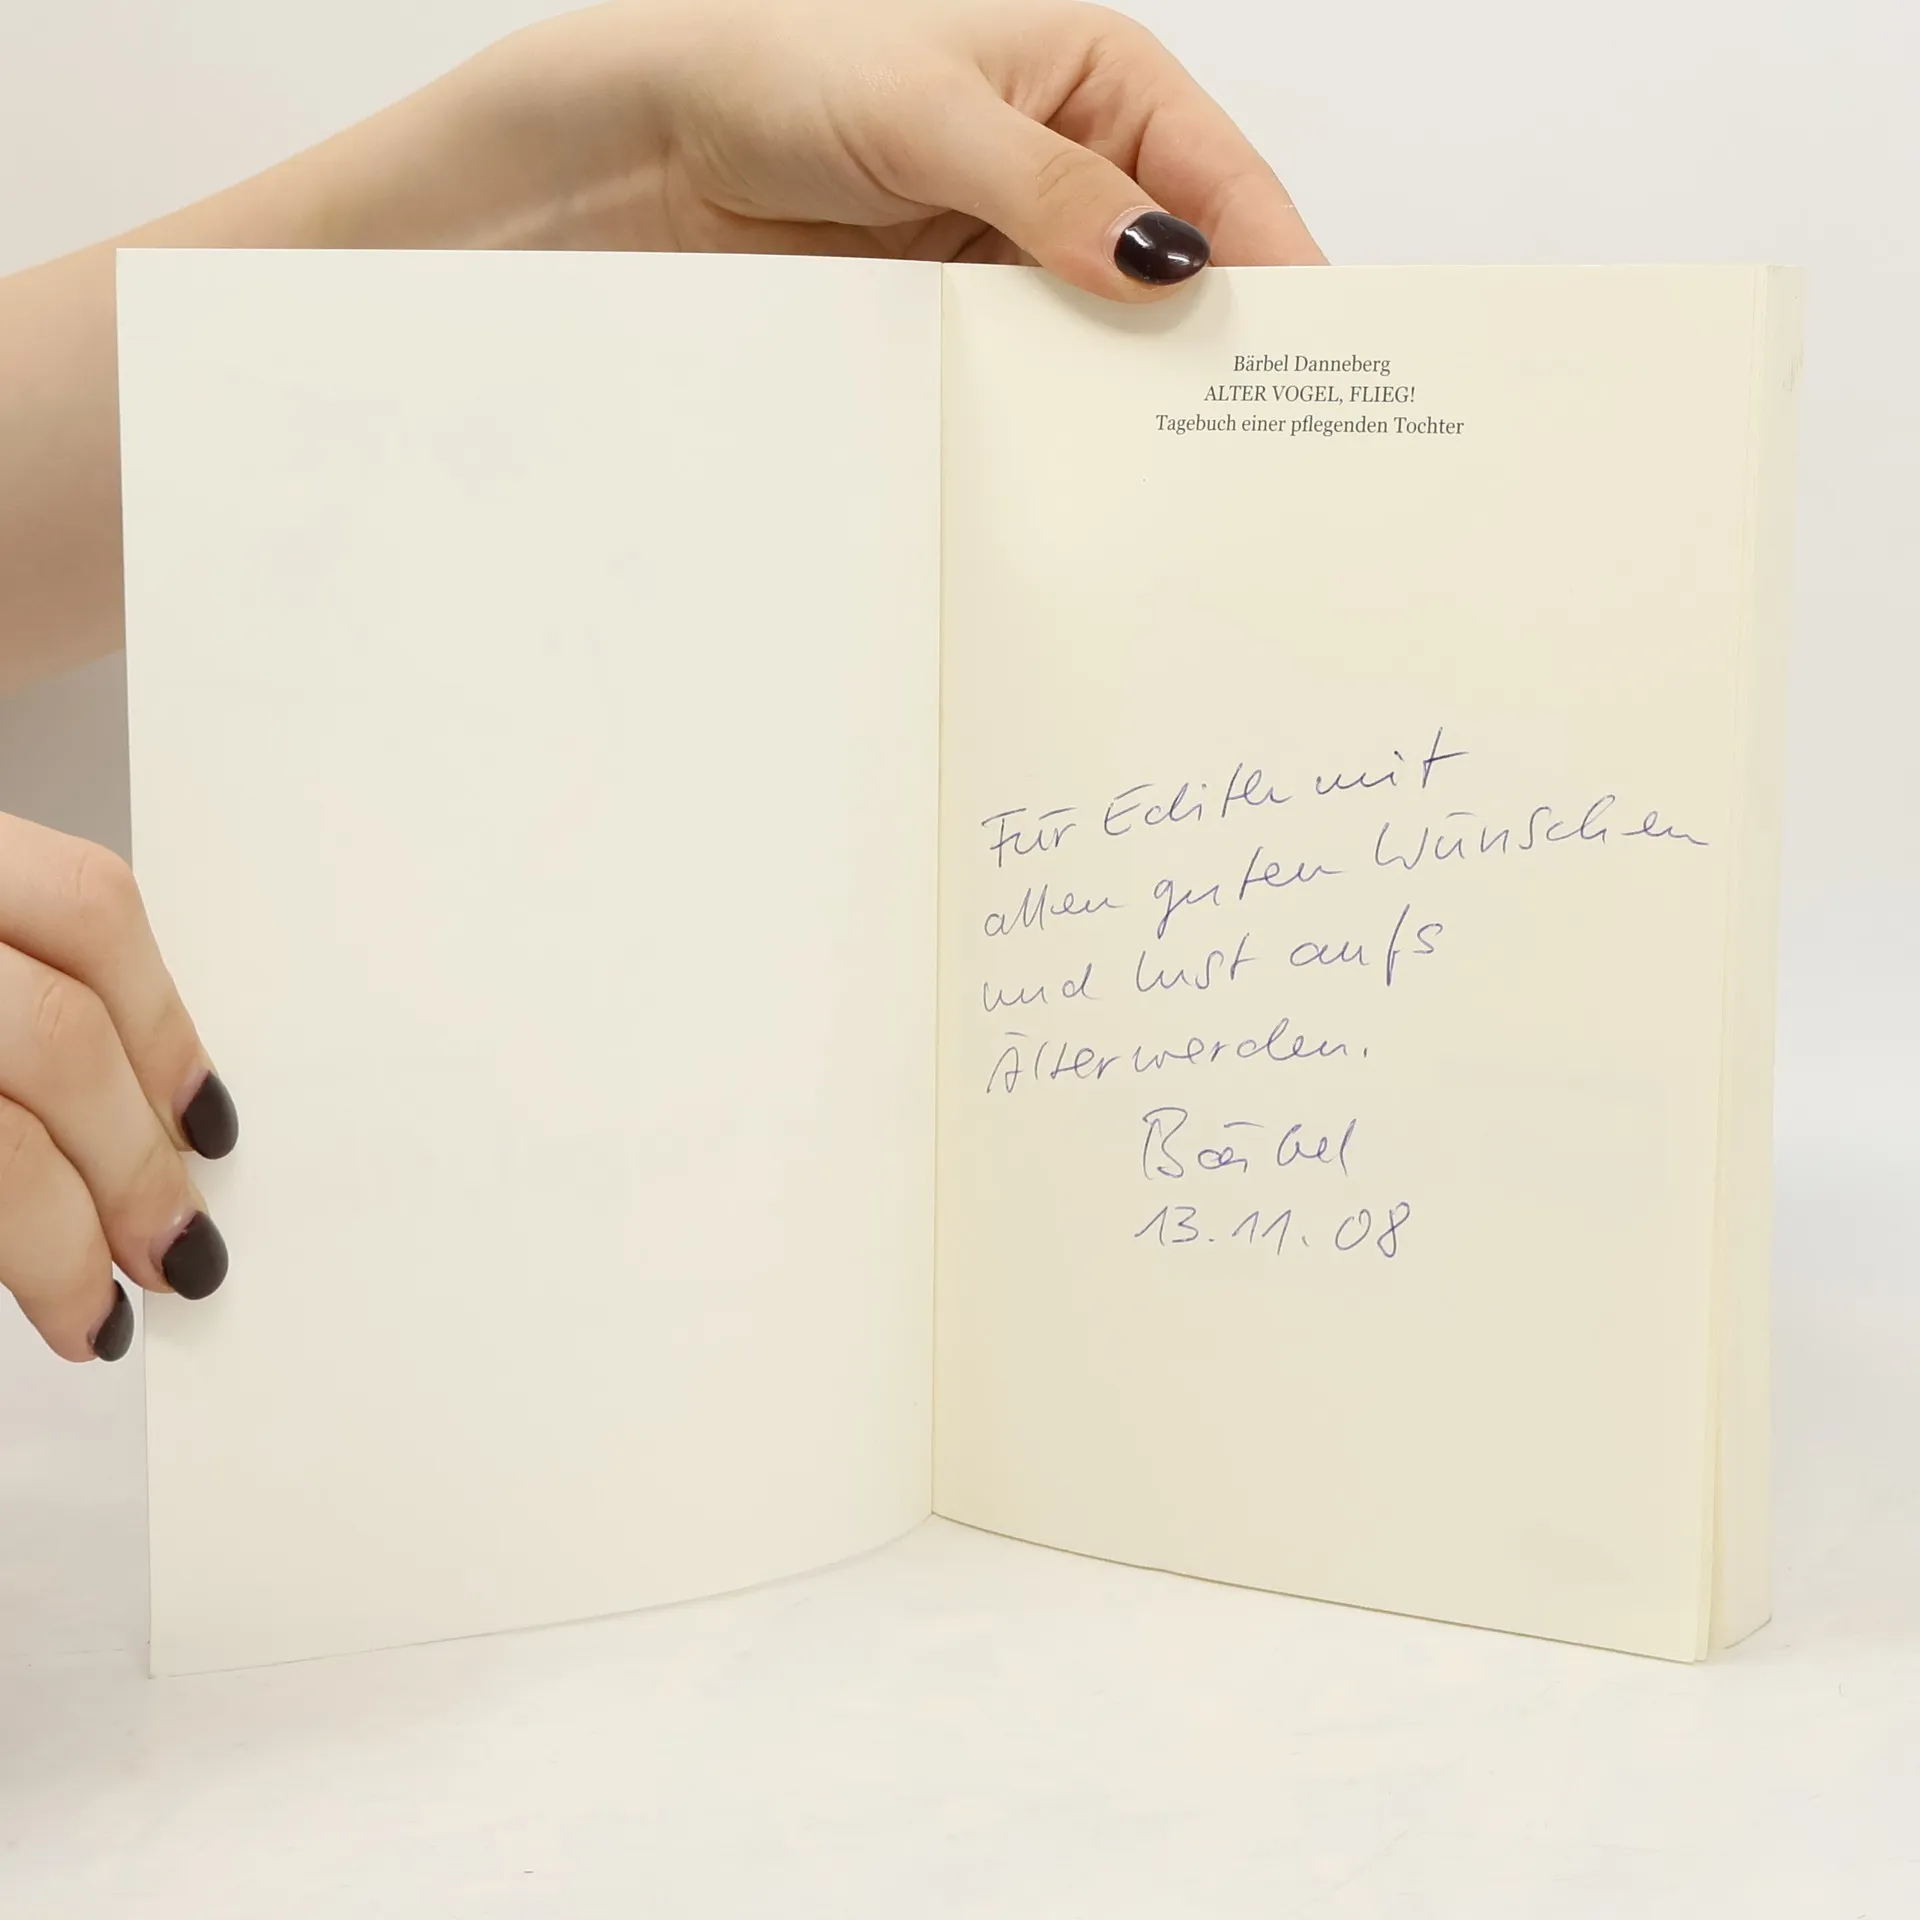 Bärbel Danneberg
ALTER VOGEL, FLIEG!
Tagebuch einer pflegenden Tochter
Für Edith mit
allen guten Wünschen
und Lust aufs
Älterwerden.
Bärbel
13.11.08